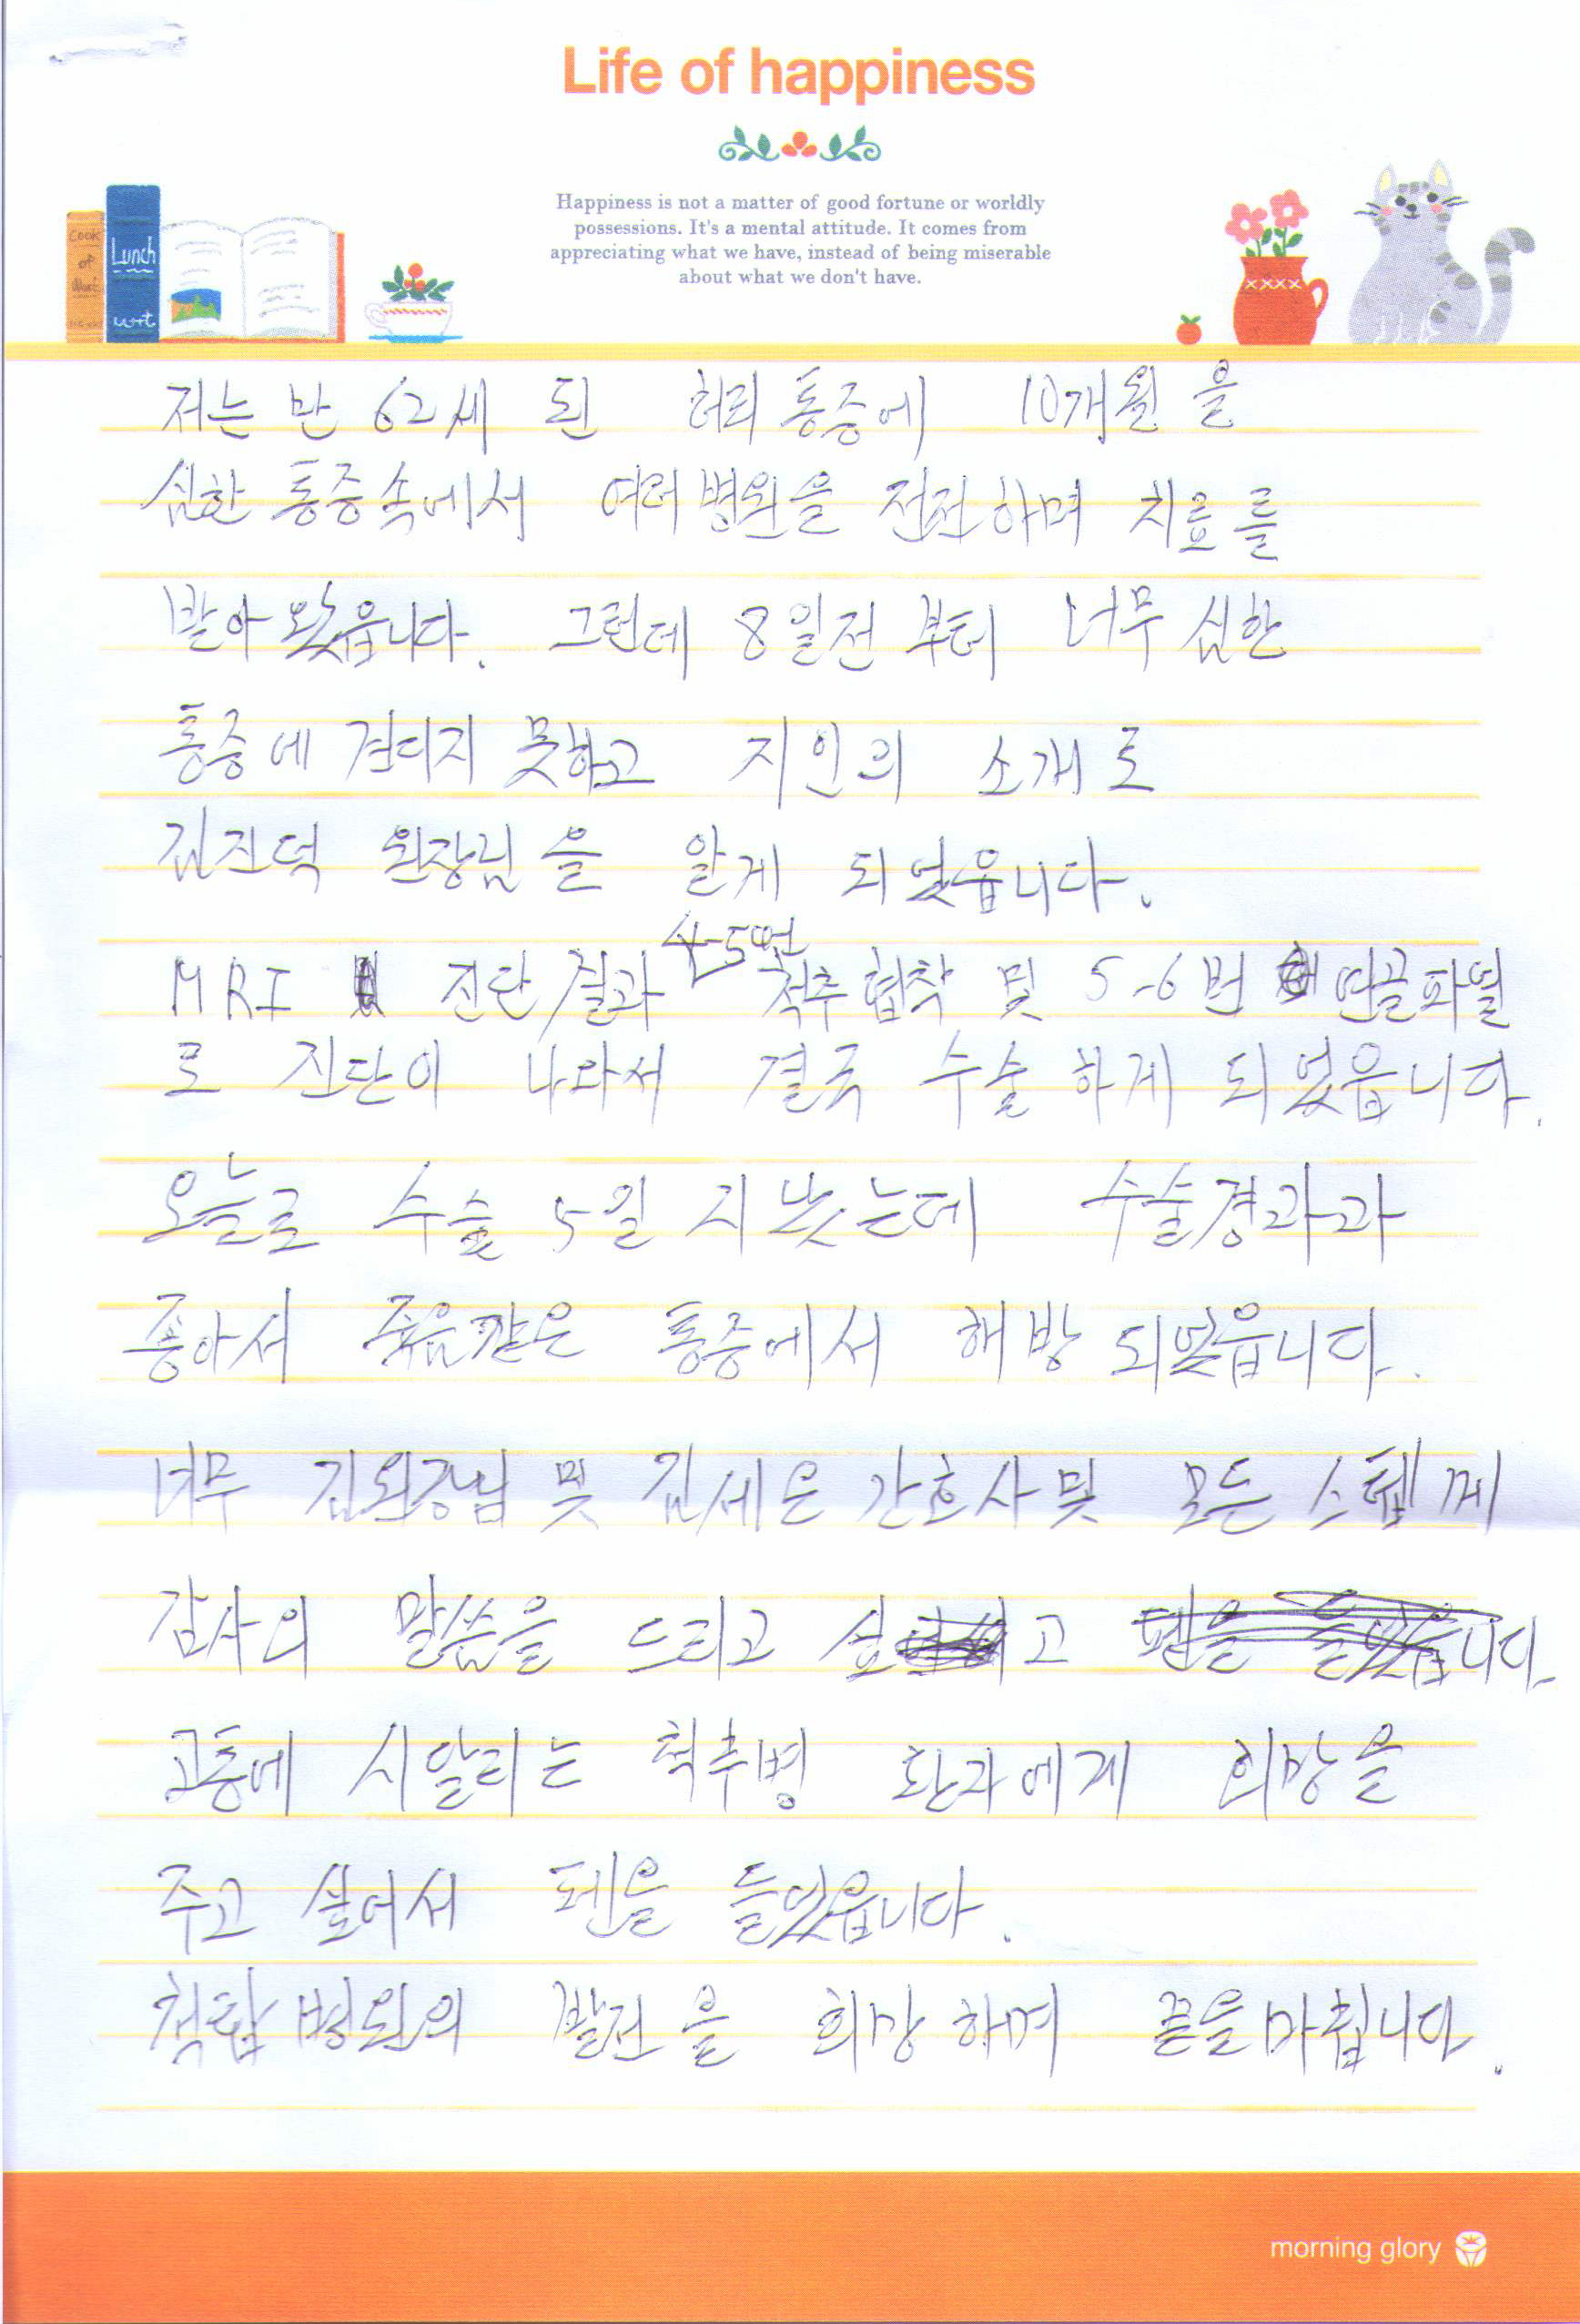 Life of happiness
Happiness is not a matter of good fortune or worldly
possessions. It's a mental attitude. It comes from
appreciating what we have, instead of being miserable
about what we don't have.
Cook
of
Lunch
저는 만 62세 된 허리통증에 10개월을
심한 통증속에서 여러병원을 전전하며 치료를
받아 왔읍니다. 그런데 8일전 부터 너무 심한
통증에 견디지 못하고 지인의 소개로
김진덕 원장님을 알게 되었읍니다.
4-5번
MRI 진단결과 척추협착 및 5-6번 연골파열
로 진단이 나와서 결국 수술하게 되었읍니다.
오늘로 수술 5일 지났는데 수술경과과
좋아서 죽음같은 통증에서 해방되었읍니다.
너무 김원장님 및 김세은 간호사및 모든 스텝께
감사의 말씀을 드리고 고 펜을 들었읍니다.
고통에 시달리는 척추병 환자에게 희망을
주고 싶어서 펜을 들었읍니다.
척탑병원의 발전을 희망하며 끝을마칩니다.
morning glory